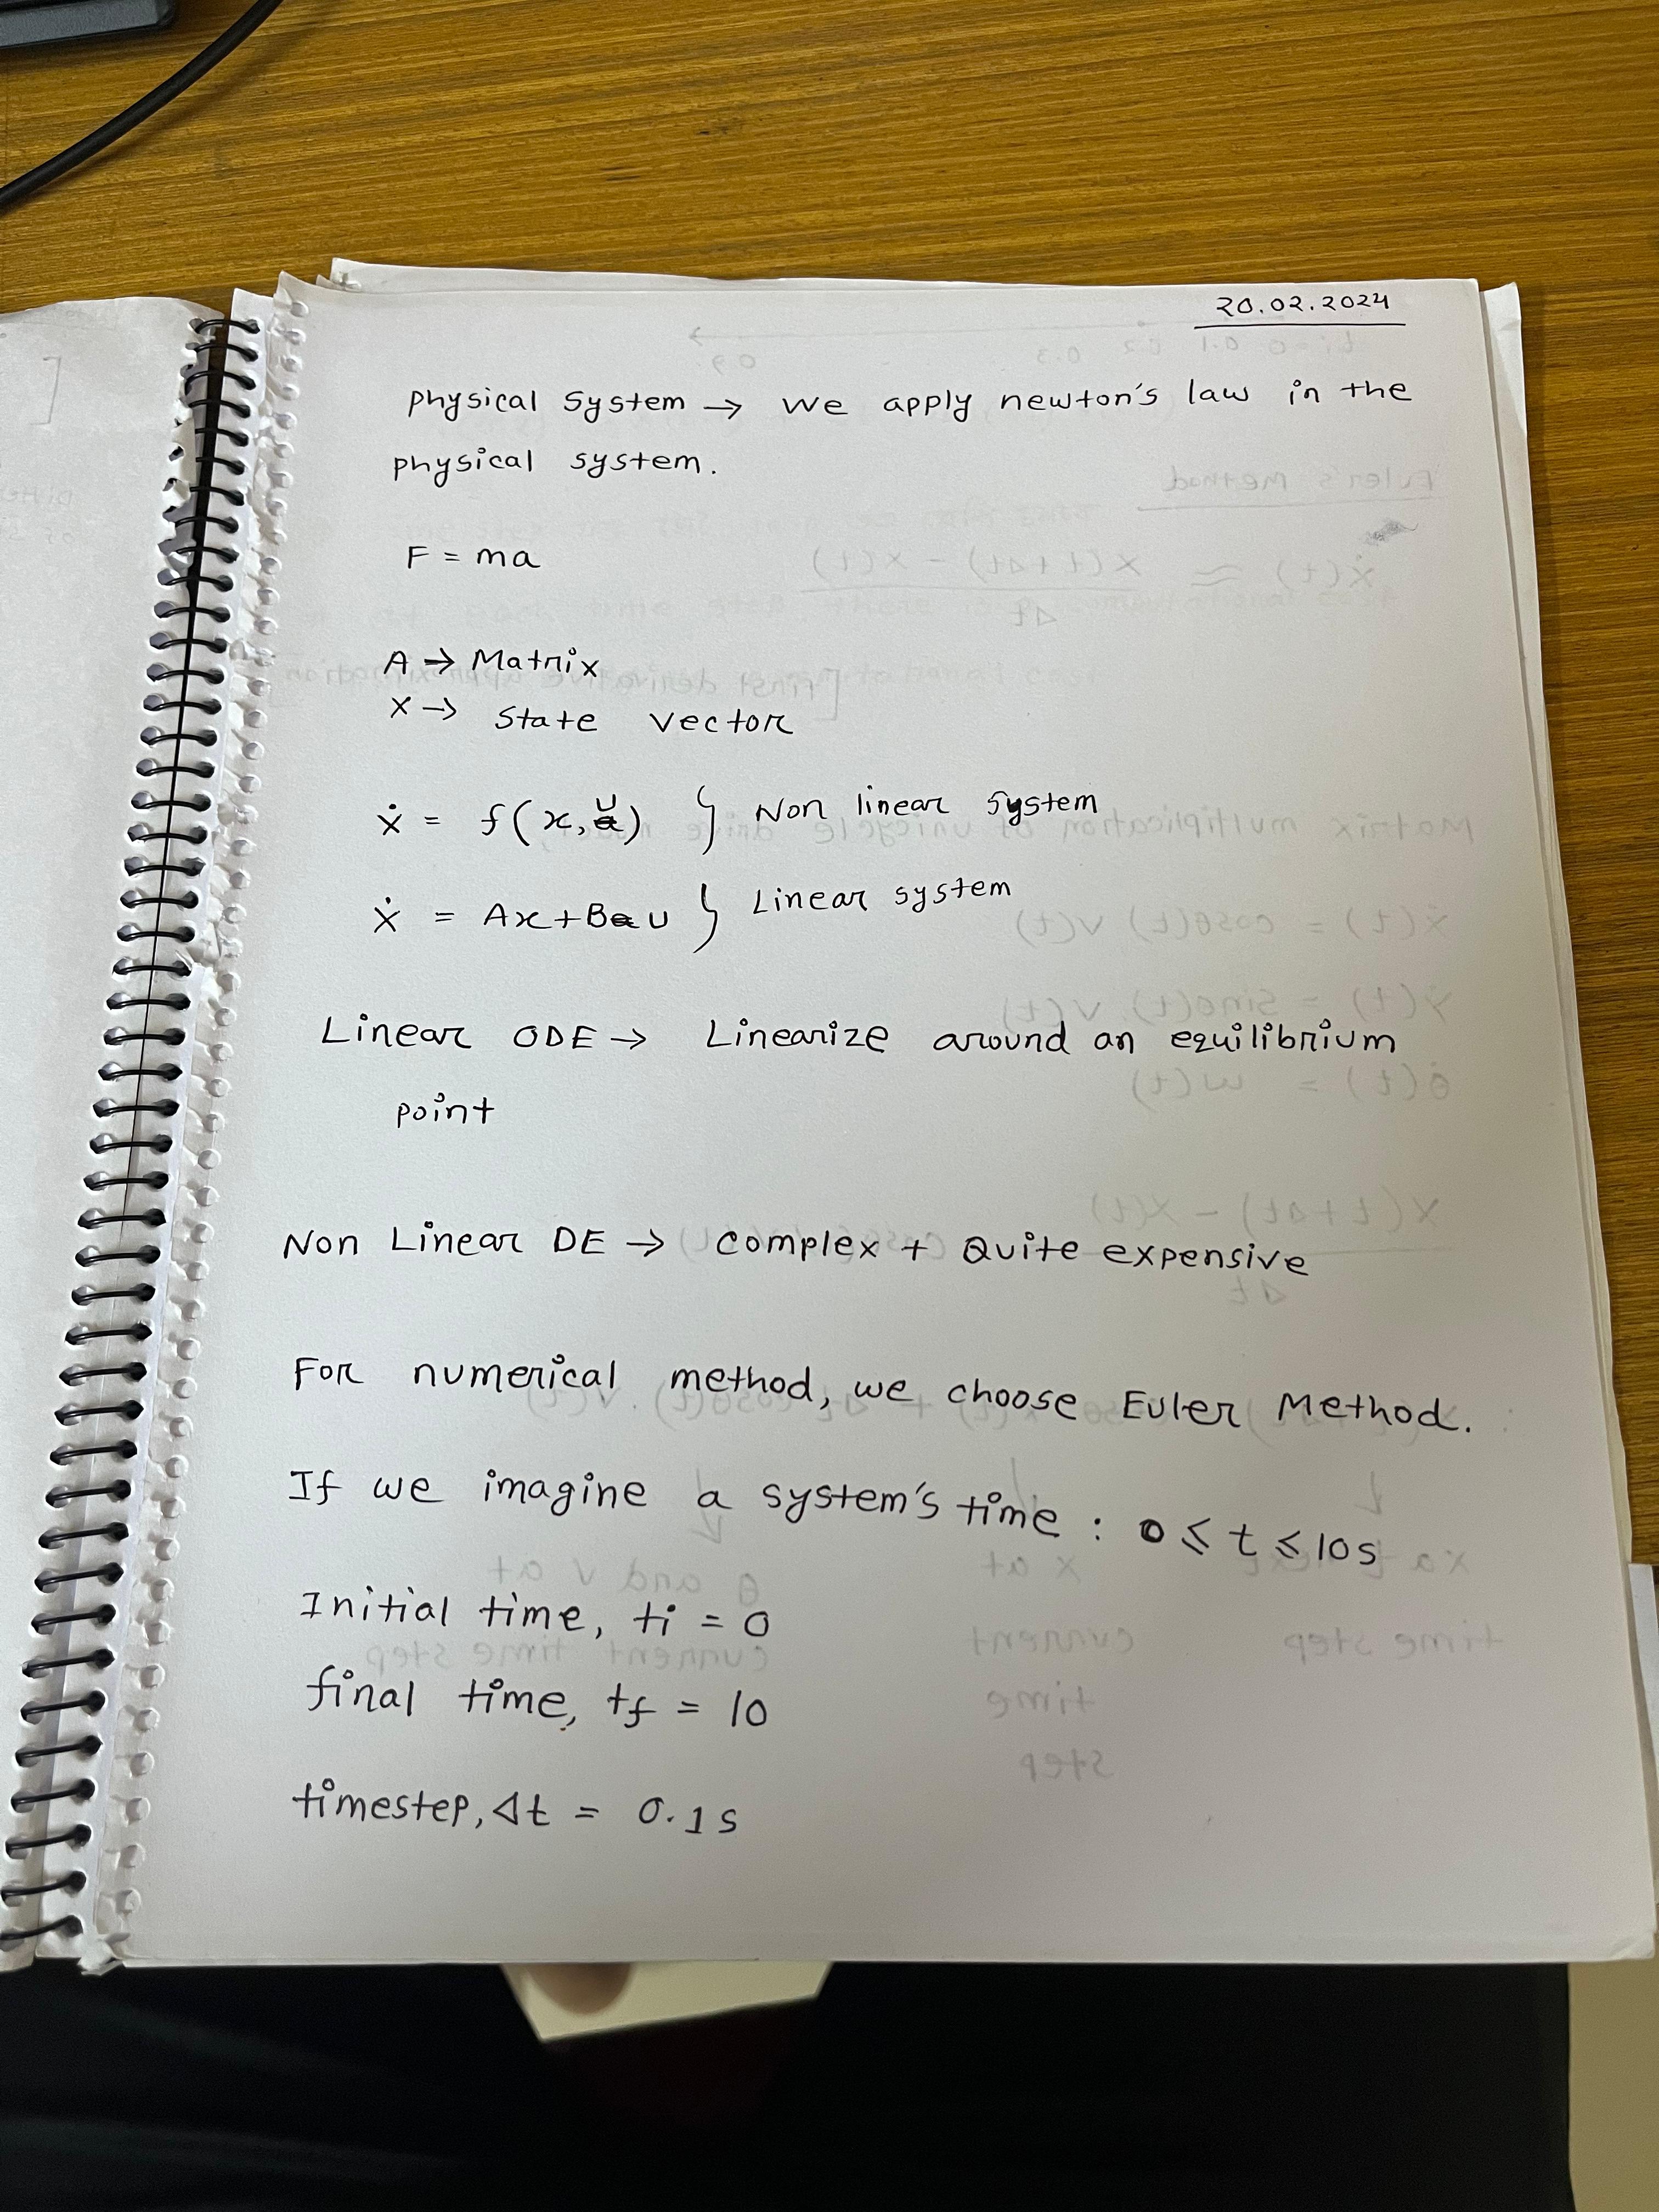 20.02.2024
Physical System → We apply newton's law in the
physical system.
F = ma
A → Matrix
X → State vector
ẋ = f(x, u) } Non linear system
ẋ = Ax+Bu } Linear system
Linear ODE → Linearize around an equilibrium
point
Non Linear DE → Complex + Quite expensive
For numerical method, we choose Euler Method.
If we imagine a system's time : 0 ≤ t ≤ 10s
Initial time, ti = 0
final time, tf = 10
timestep, Δt = 0.1s